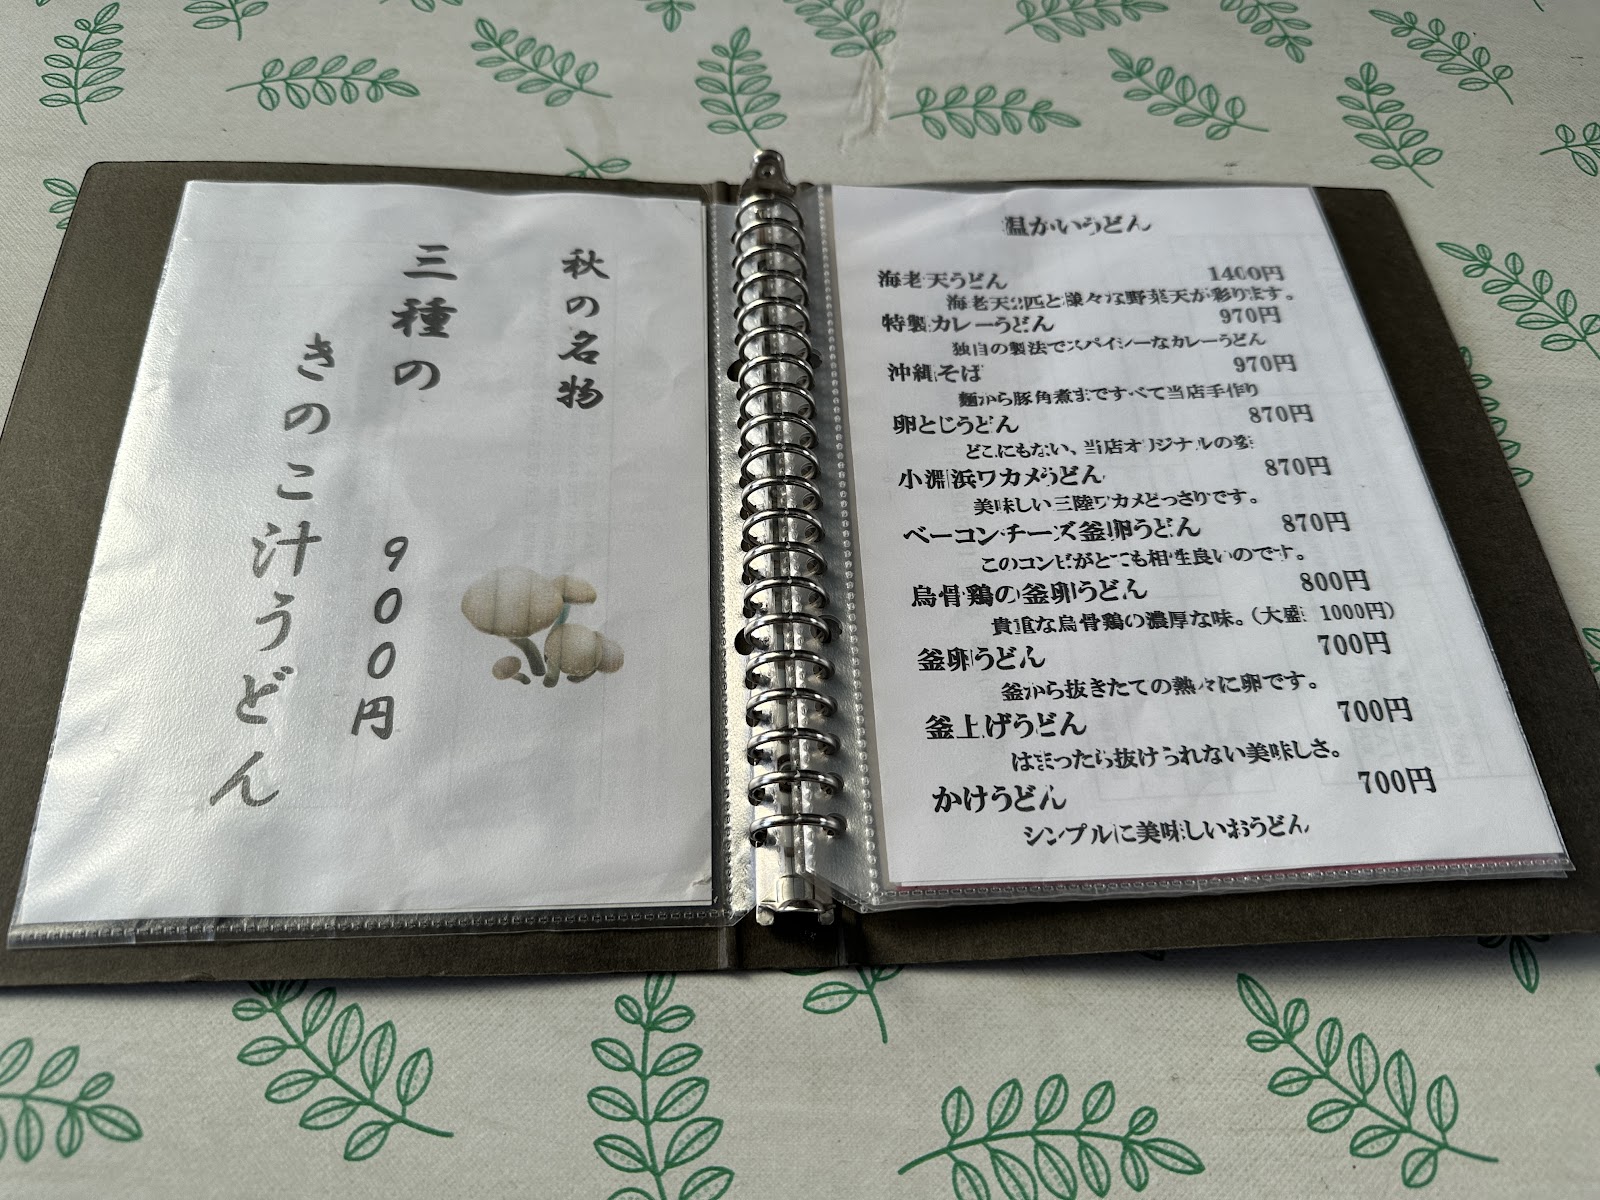 秋の名物
三種の
きのこ汁うどん
900円
温かいうどん
海老天うどん 1400円
海老天2匹と様々な野菜天が彩ります。
特製カレーうどん 970円
独自の製法でスパイシーなカレーうどん
沖縄そば 970円
麺から豚角煮まですべて当店手作り
卵とじうどん 870円
どこにもない、当店オリジナルの姿
小淵浜ワカメうどん 870円
美味しい三陸ワカメどっさりです。
ベーコンチーズ釜卵うどん 870円
このコンビがとても相性良いのです。
烏骨鶏の釜卵うどん 800円
貴重な烏骨鶏の濃厚な味。(大盛 1000円)
釜卵うどん 700円
釜から抜きたての熱々に卵です。
釜上げうどん 700円
はまったら抜けられない美味しさ。
かけうどん 700円
シンプルに美味しいおうどん